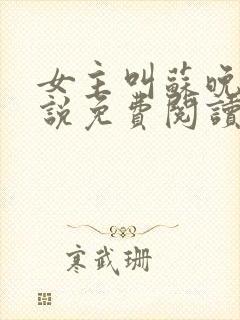 女主叫蘇晚
說免費閱讀
寒武珊